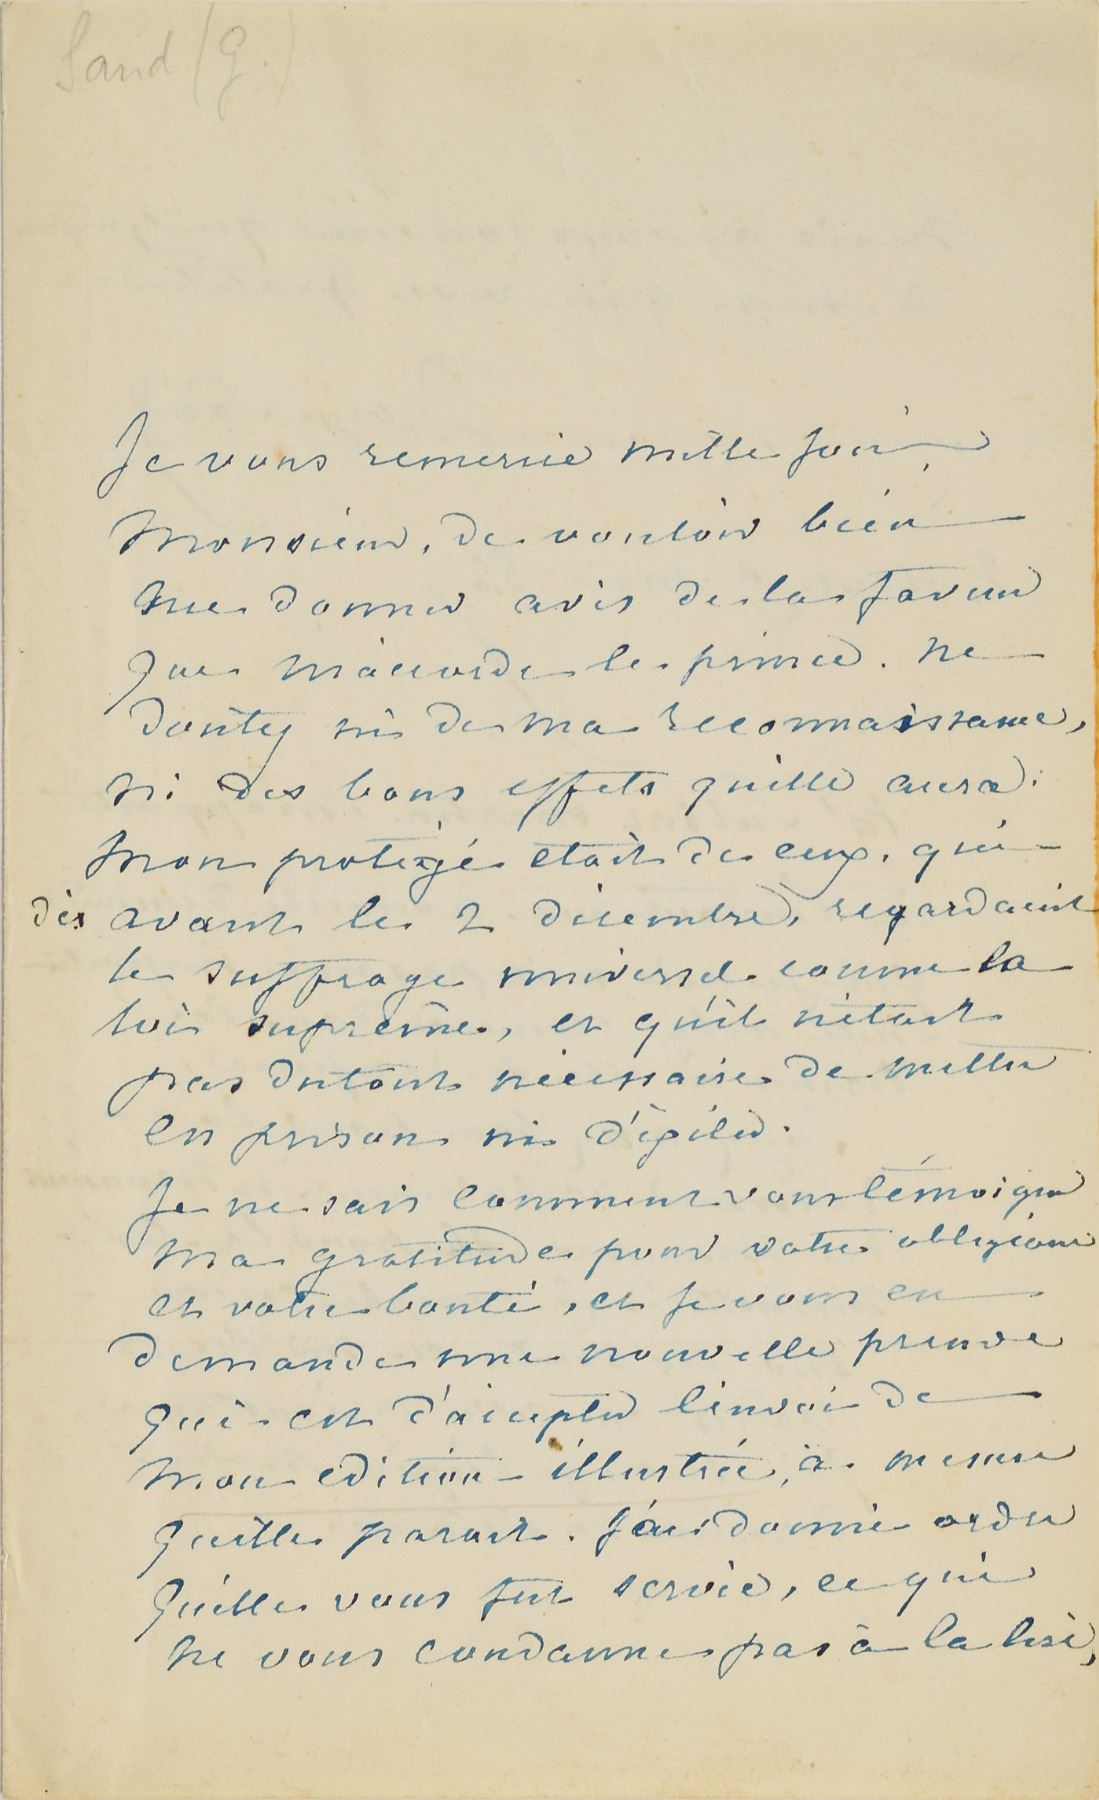 Sand (G.)
Je vous remercie mille fois,
Monsieur, de vouloir bien
me donner avis de la faveur
que m'accorde le prince. ne
doutez ni de ma reconnaissance,
ni des bons effets qu'elle aura.
Mon protégé était de ceux, qui
dès avant le 2 décembre, regardaient
le suffrage universel comme la
loi suprême, et qu'il n'était
pas du tout nécessaire de mettre
en prison ni d'exiler.
Je ne sais comment vous témoigner
ma gratitude pour votre obligeance
et votre bonté, et je vous en
demande une nouvelle preuve
qui est d'accepter l'envoi de
mon edition illustrée, à mesure
qu'elle parait. J'ai donné ordre
qu'elle vous fut servie, ce qui
ne vous condamne pas à la lire,